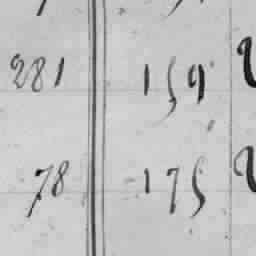 281 159
78 175